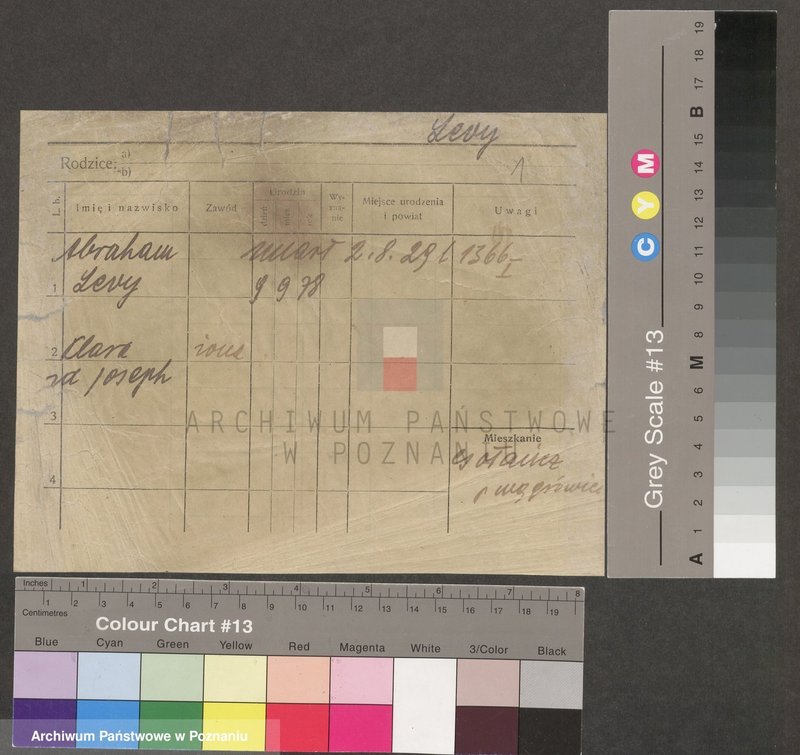 Levy
Rodzice: a)
b)
1
L. b.
Imię i nazwisko
Zawód
Urodzin
dzień
rok
Wy-
zna-
nie
Miejsce urodzenia
i powiat
Uwagi
1
Abraham
Levy
umarł 2.8.29
1366
9 9 78
2
Klara
żona
Joseph
3
4
Mieszkanie
Gołańcz
wągrowiec
ARCHIWUM PAŃSTWOWE
W POZNANIU
Inches 1 2 3 4 5 6 7 8
Centimetres 1 2 3 4 5 6 7 8 9 10 11 12 13 14 15 16 17 18 19
Colour Chart #13
Blue Cyan Green Yellow Red Magenta White 3/Color Black
Archiwum Państwowe w Poznaniu
Grey Scale #13
C Y M
A 1 2 3 4 5 6 M 8 9 10 11 12 13 14 15 B 17 18 19